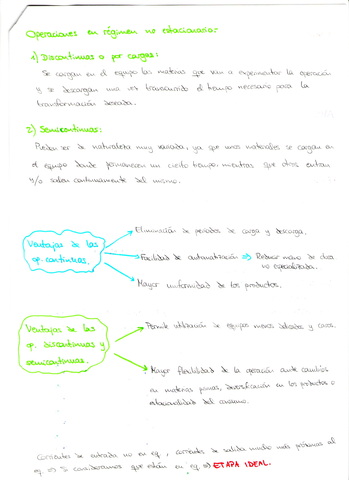 Operaciones en régimen no estacionario:
1) Discontinuas o por cargas:
Se cargan en el equipo las materias que van a experimentar la operación
y se descargan una vez transcurrido el tiempo necesario para la
transformación deseada.
2) Semicontinuas:
Pueden ser de naturaleza muy variada, ya que unos materiales se cargan en
el equipo donde permanecen un cierto tiempo, mientras que otros entran
y/o salen continuamente del mismo.
Ventajas de las
op. continuas.
Eliminación de periodos de carga y descarga.
Facilidad de automatización ⇒ Reduce mano de obra
no especializada.
Mayor uniformidad de los productos.
Ventajas de las
op. discontinuas y
semicontinuas.
Permite utilización de equipos menos delicados y caros.
Mayor flexibilidad de la operación ante cambios
en materias primas, diversificación en los productos o
estacionalidad del consumo.
Corrientes de entrada no en eq., corrientes de salida mucho más próximas al
eq. Si consideramos que están en eq ⇒ ETAPA IDEAL.